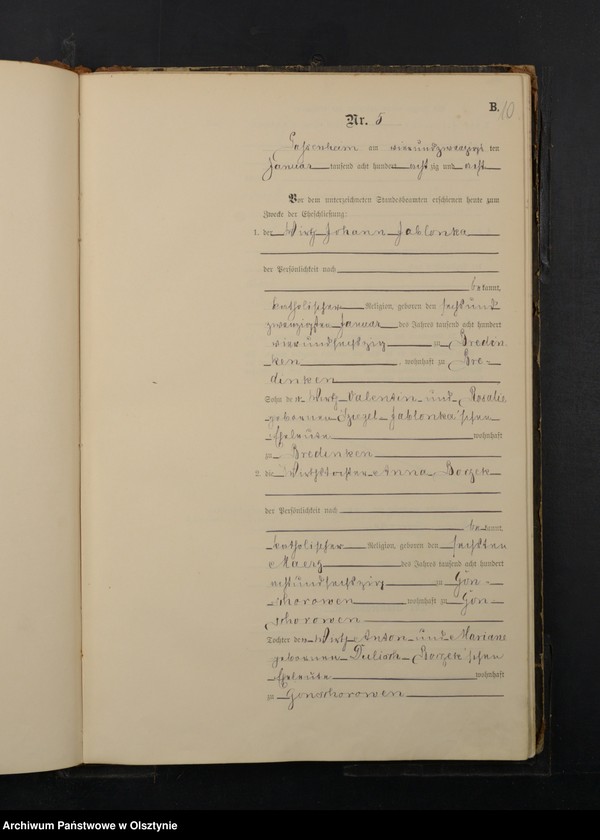 B.
10
Nr. 5
Lassenheim am vierundzwanzigs ten
Januar tausend acht hundert acht zig und acht
Vor dem unterzeichneten Standesbeamten erschienen heute zum
Zwecke der Eheschließung:
1. der Wirth Johann Jablonka
der Persönlichkeit nach
be kannt,
katholischer Religion, geboren den sechsund
zwanzigsten Januar des Jahres tausend acht hundert
vierundsechszig zu Bredin
ken, wohnhaft zu Bre-
dinken
Sohn des Wirth Valentin und Rosalie
geborenen Jablonka'schen
Eheleute wohnhaft
zu Bredinken
2. die Wirthstochter Anna Borzek
der Persönlichkeit nach
be kannt,
katholischer Religion, geboren den sechsten
Maerz des Jahres tausend acht hundert
achtundsechszig zu Gon-
schorowen wohnhaft zu Gon-
schorowen
Tochter des Wirth Anton und Mariane
geborenen Borzek'schen
Eheleute wohnhaft
zu Gonschorowen
Archiwum Państwowe w Olsztynie